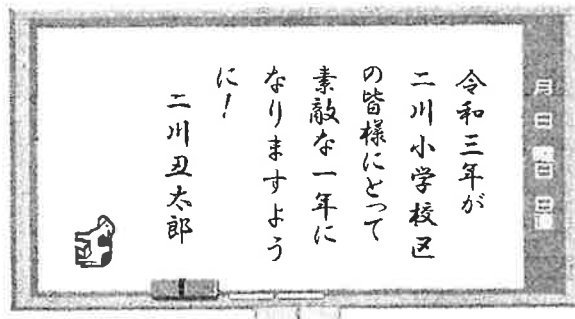 月 日 曜日 日直
令和三年が
二川小学校区
の皆様にとって
素敵な一年に
なりますよう
に!
二川丑太郎